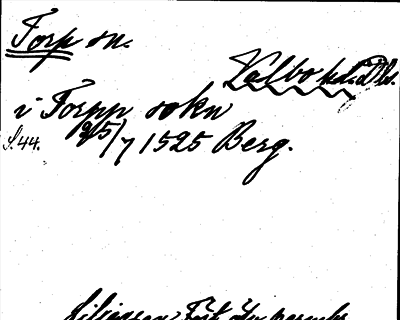 Torp sn.
Valbo hd. Dls.
i Torpp sokn
S. 44. 25/7 1525 Berg.